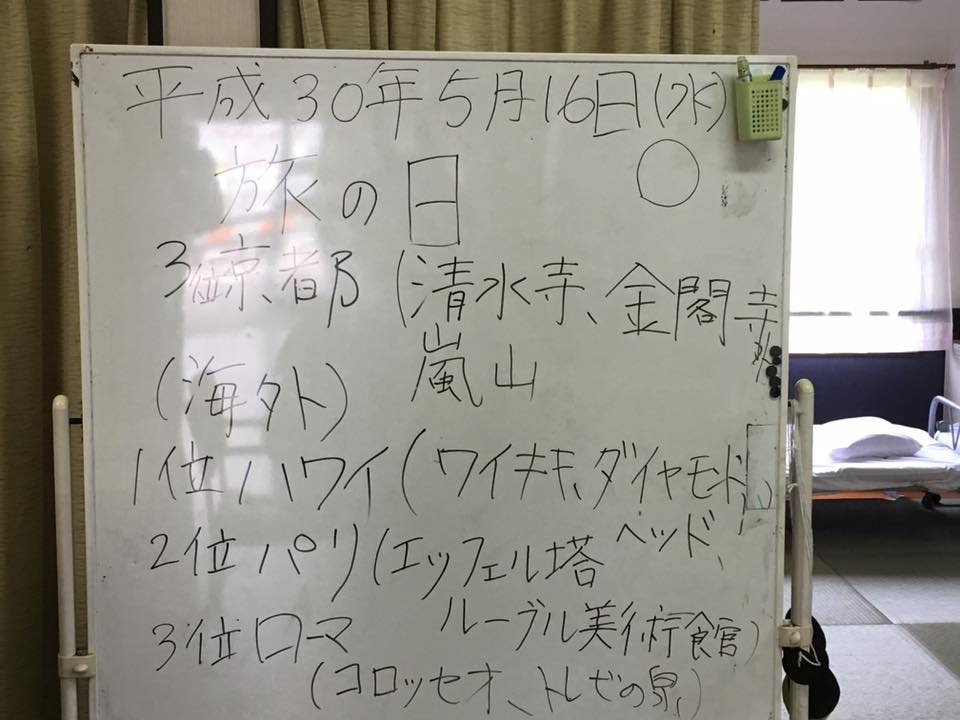 平成30年5月16日(水)
旅の日
3位京都(清水寺、金閣寺
嵐山
(海外)
1位ハワイ(ワイキキ、ダイヤモンド
ヘッド、
2位パリ(エッフェル塔
ルーブル美術館)
3位ローマ
(コロッセオ、トレビの泉)